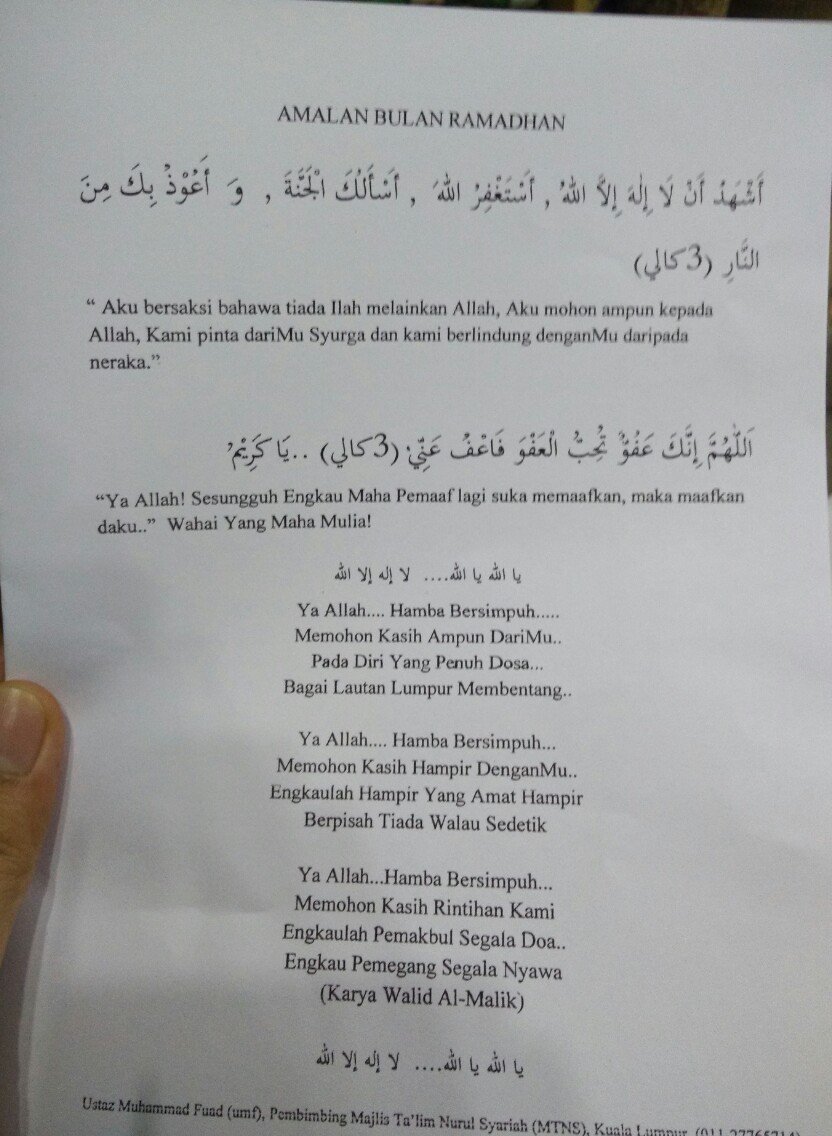 AMALAN BULAN RAMADHAN
أَشْهَدُ أَنْ لَا إِلٰهَ إِلَّا اللهُ , أَسْتَغْفِرُ اللهَ , أَسْأَلُكَ الْجَنَّةَ , وَ أَعُوْذُ بِكَ مِنَ
النَّارِ (3 كالي)
“ Aku bersaksi bahawa tiada Ilah melainkan Allah, Aku mohon ampun kepada
Allah, Kami pinta dariMu Syurga dan kami berlindung denganMu daripada
neraka.”
اَللّٰهُمَّ إِنَّكَ عَفُوٌّ تُحِبُّ الْعَفْوَ فَاعْفُ عَنِّيْ (3 كالي) ..يَا كَرِيْمُ
“Ya Allah! Sesungguh Engkau Maha Pemaaf lagi suka memaafkan, maka maafkan
daku..” Wahai Yang Maha Mulia!
يا الله يا الله.... لا إله إلا الله
Ya Allah.... Hamba Bersimpuh.....
Memohon Kasih Ampun DariMu..
Pada Diri Yang Penuh Dosa...
Bagai Lautan Lumpur Membentang..
Ya Allah.... Hamba Bersimpuh...
Memohon Kasih Hampir DenganMu..
Engkaulah Hampir Yang Amat Hampir
Berpisah Tiada Walau Sedetik
Ya Allah...Hamba Bersimpuh...
Memohon Kasih Rintihan Kami
Engkaulah Pemakbul Segala Doa..
Engkau Pemegang Segala Nyawa
(Karya Walid Al-Malik)
يا الله يا الله.... لا إله إلا الله
Ustaz Muhammad Fuad (umf), Pembimbing Majlis Ta’lim Nurul Syariah (MTNS), Kuala Lumpur.